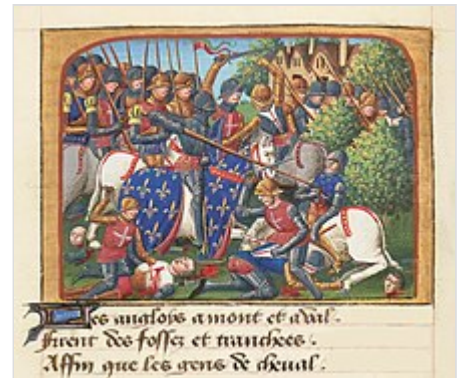 Les anglois amont et aval.
firent des fossez et tranchees.
Affin que les gens de cheual.